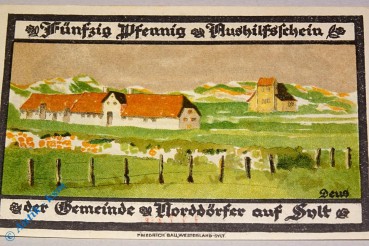 Fünfzig Pfennig Aushilfsschein
Deus
der Gemeinde Norddörfer auf Sylt
FRIEDRICH BAU, WESTERLAND-SYLT.